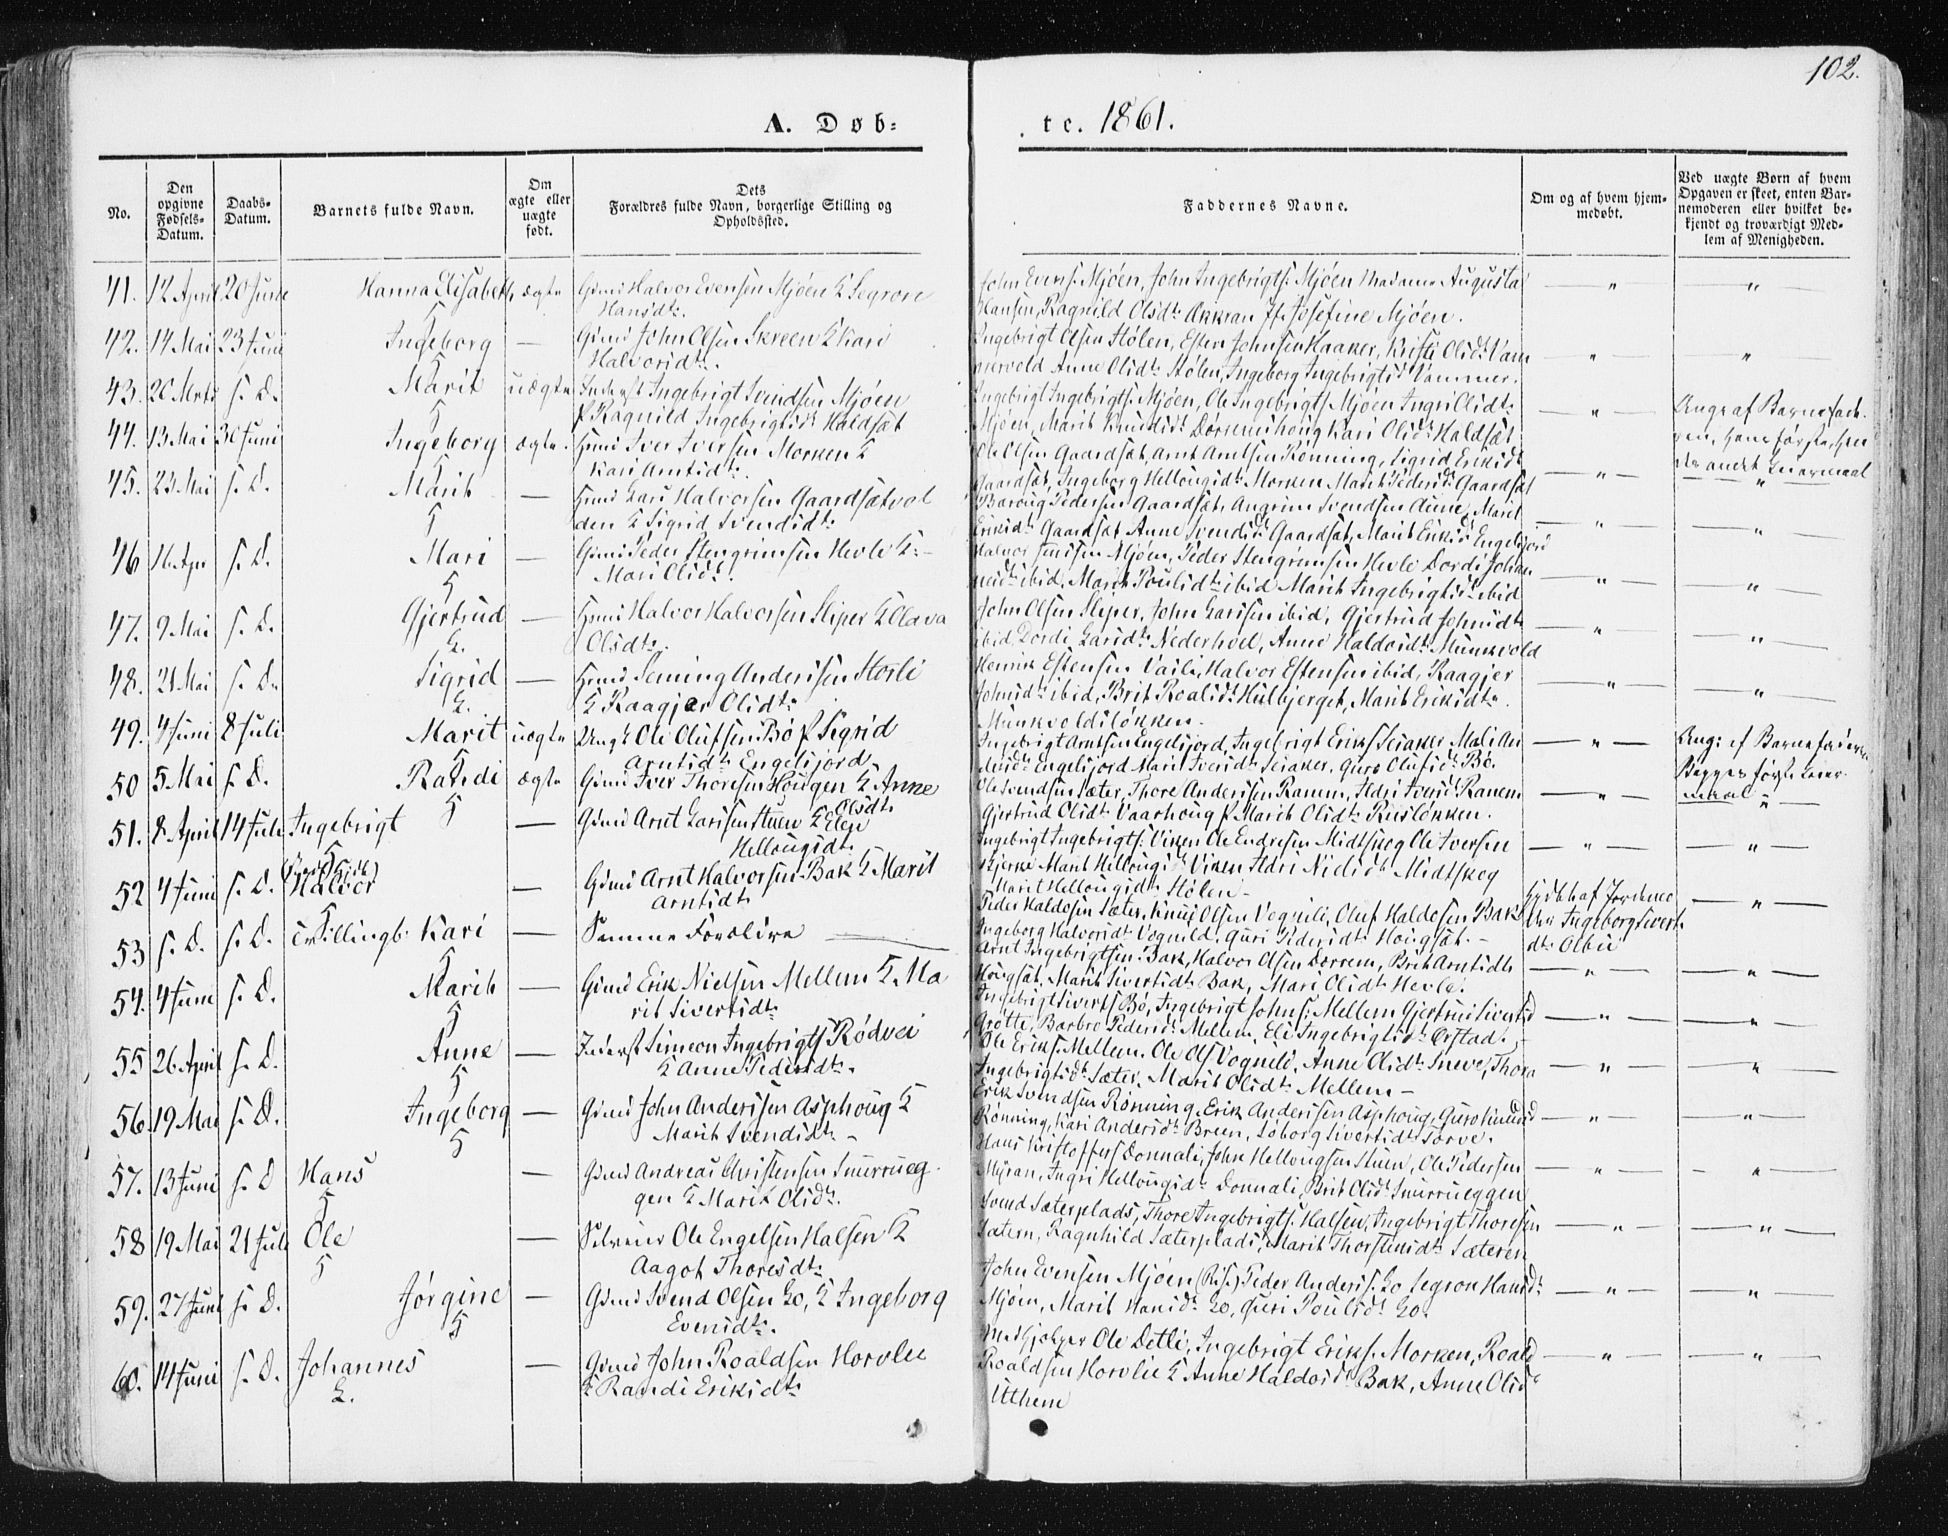 102.
A. Døb-
te. 1861.
No.
Den opgivne Fødsels-Datum.
Daabs-Datum.
Barnets fulde Navn.
Om ægte eller uægte født.
Dets Forældres fulde Navn, borgerlige Stilling og Opholdssted.
Faddernes Navne.
Om og af hvem hjem-medøbt.
Ved uægte Børn af hvem Opgaven er skeet, enten Bar-nemoderen eller hvilket be-kjendt og troværdigt Med-lem af Menigheden.
41. 12 April 20 June Hanna Elisabeth ægte Gmd Halvor Evensen Mjøen & Segrove
Hansdt.
John Evens. Mjøen, John Ingebrigts. Mjøen Madame Augusta
Hansen, Ragnild Olsdt. Akkran Jf. Josefine Mjøen.
42. 14 Mai 23 Juni Ingeborg — Gmd John Olsen Skreen & Kari
Halvorsdt.
Ingebrigt Olsen Stølen, Esten Johnsen Haaker, Kristi Olsdt. Vam
mervold Anne Olsdt. Stølen, Ingeborg Ingebrigtsdt Vammer.
43. 20 Mrts s. D. Marit uægte Inderst Ingebrigt Svendsen Mjøen
P Ragnild Ingebrigtsdt Haldsæt
Ingebrigt Ingebrigts. Mjøen, Ole Ingebrigts Mjøen Ingri Olsdt.
Mjøen, Marit Knudsdt Dørremshoug Kari Olsdt. Haldsæt
Ang. af Barnefade-
ren, hans første, hen
des andet Leiermaal
44. 13 Mai 30 Juni Ingeborg ægte. Gmd Iver Iversen Morken &
Kari Arntsdt.
Ole Olsen Gaardsæt, Arnt Arntsen Rønning, Sigrid Eriksdt
Gaardsæt, Ingeborg Hellougsdt. Morken Marit Pedersdt. Gaardsæt
45. 23 Mai s. D. Marit — Gmd Lars Halvorsen Gaardsætvol
den & Sigrid Svendsdt.
Baroug Pedersen Gaardsæt, Angrim Svendsen Aune, Marit
Eriksdt. Gaardsæt Anne Svendsdt. Gaardsæt, Marit Eriksdt Engelsjord
46 16 Apr s. D. Mari — Gmd Peder Stengrimsen Hevle &
Mari Olsdt.
Halvor Jensen Mjøen, Peder Stengrimsen Hevle Dordi Johan
nesdt. ibid, Marit Poulsdt. ibid Marit Ingebrigtsdt. ibid
47. 9 Mai s. D. Gjertrud — Gmd Halvor Halvorsen Sliper & Olava
Olsdt.
John Olsen Sliper, John Larssen ibid, Gjertrud Johnsdt.
ibid, Dordi Larsdt. Nederhoel, Anne Haldosdt. Munkvold
48. 21 Mai s. D. Sigrid — Gmd Seming Anderssen Storli
& Kaagjer Olsdt.
Henrik Estensen Vaili, Halvor Estensen ibid, Raagjer
Johnsdt. ibid, Brit Roalsdt. Hulbjerget, Marit Eriksdt.
Munkvoldsløkken.
49. 4 Juni 8 Juli Marit uægte Ungk. Ole Olufsen Bø P Sigrid
Arntsdt. Engelsjord
Ingebrigt Arntsen Engelsjord, Ingebrigt Eriks
Engelsjord Marit Iversdt. Guro Olufsdt. Bø.
Ang. af Barnefaderen
Begges første Leier-
maal
50 5 Mai s. D. Randi ægte Gmd Iver Thoresen Hougen & Anne
Olsdt.
Ole Svendsen Sæter, Thore Anderssen Ramm
Gjertrud Olsdt. Vaarhoug P Marit Olsdt. Riisløkken.
51. 8 April 14 Juli Ingebrigt — Gmd Arnt Larssen Stuen & Eli
Hellougsdt.
Ingebrigt Ingebrigts. Viken Ole Endresen Midtskog Ole Iversen
Bjerke Marit Hellougsdt Viken Midtskog
Marit Hellougsdt. Stølen
52 4 Juni s. D. Halvor — Gmd Arnt Halvorsen Bak & Marit
Arntsdt.
Peder Haldosen Sæter, Knud Olsen Vognild, Oluf Haldosen Bak
Ingeborg Halvorsdt. Vognild, Guri Pedersdt. Hougsæt.
Hjdbt. af Jordemo
der Ingeborg Sivert
dt. Albu
53 s. D. s. D. Tvillingb. Kari — Samme Forældre
Arnt Ingebrigtsen Bak, Halvor Olsen Dørrem, Brit Arntsdt.
Hougsæt, Marit Sivertsdt. Bak, Mari Olsdt. Hevle.
54. 4 Juni s. D. Marit — Gmd Erik Nielsen Mellem & Ma
rit Sivertsdt.
Ingebrigt Siverts Bø, Ingebrigt Johns. Mellem Gjertrud Sivertsd
Grøtte, Barbro Pedersdt. Mellem, Eli Ingebrigtsdt. Ørstad.
55 26 April s. D. Anne — Inderst Simeon Ingebrigts Rødvei
& Anne Pedersdt.
Ole Eriks. Mellem, Ole Ols Vognild, Anne Olsdt. Sneve, Thora
Ingebrigtsdt. Sæter, Marit Olsdt. Mellem —
56 19 Mai s. D. Ingeborg — Gmd John Anderssen Asphoug &
Marit Svendsdt. —
Erik Svendsen Rønning, Erik Anderssen Asphoug, Guro Knudsd
Rønning, Kari Andersdt. Breen, Søborg Sivertsdt. Torve.
57. 13 Juni s. D Hans — Gmd Andreas Christensen Snurrueg
gen & Marit Olsdt.
Hans Kristoffers Donnali, John Hellougsen Stuen, Ole Pedersen
Myran, Ingri Hellougsdt. Donnali, Brit Olsdt. Snurrueggen
58 19 Mai 21 Juli Ole — Selveier Ole Engelsen Halsen &
Aagot Thoresdt.
Svend Sæterplads, Thore Ingebrigts. Halsen, Ingebrigt Thoresen
Sætern, Ragnhild Sæterplads, Marit Thorstensdt. Sæteren
59. 27 Juni s. D. Jørgine — Gmd Svend Olsen Lo, & Ingeborg
Evensdt.
John Evensen Mjøen (Ris.) Peder Anders. Lo Segron Hansdt.
Mjøen, Marit Hansdt. Lo, Guri Poulsdt. Lo.
60. 14 Juni s. D. Johannes — Gmd John Roaldsen Horvlie
& Randi Eriksdt.
Medhjelper Ole Detli, Ingebrigt Eriks. Morken, Roald
Roaldsen Horvlie & Anne Haldosdt. Bak, Anne Olsd
Uthem